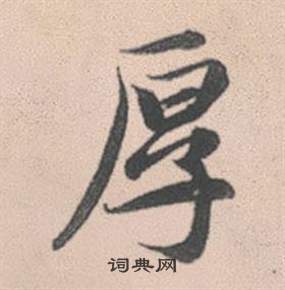 厚
词典网